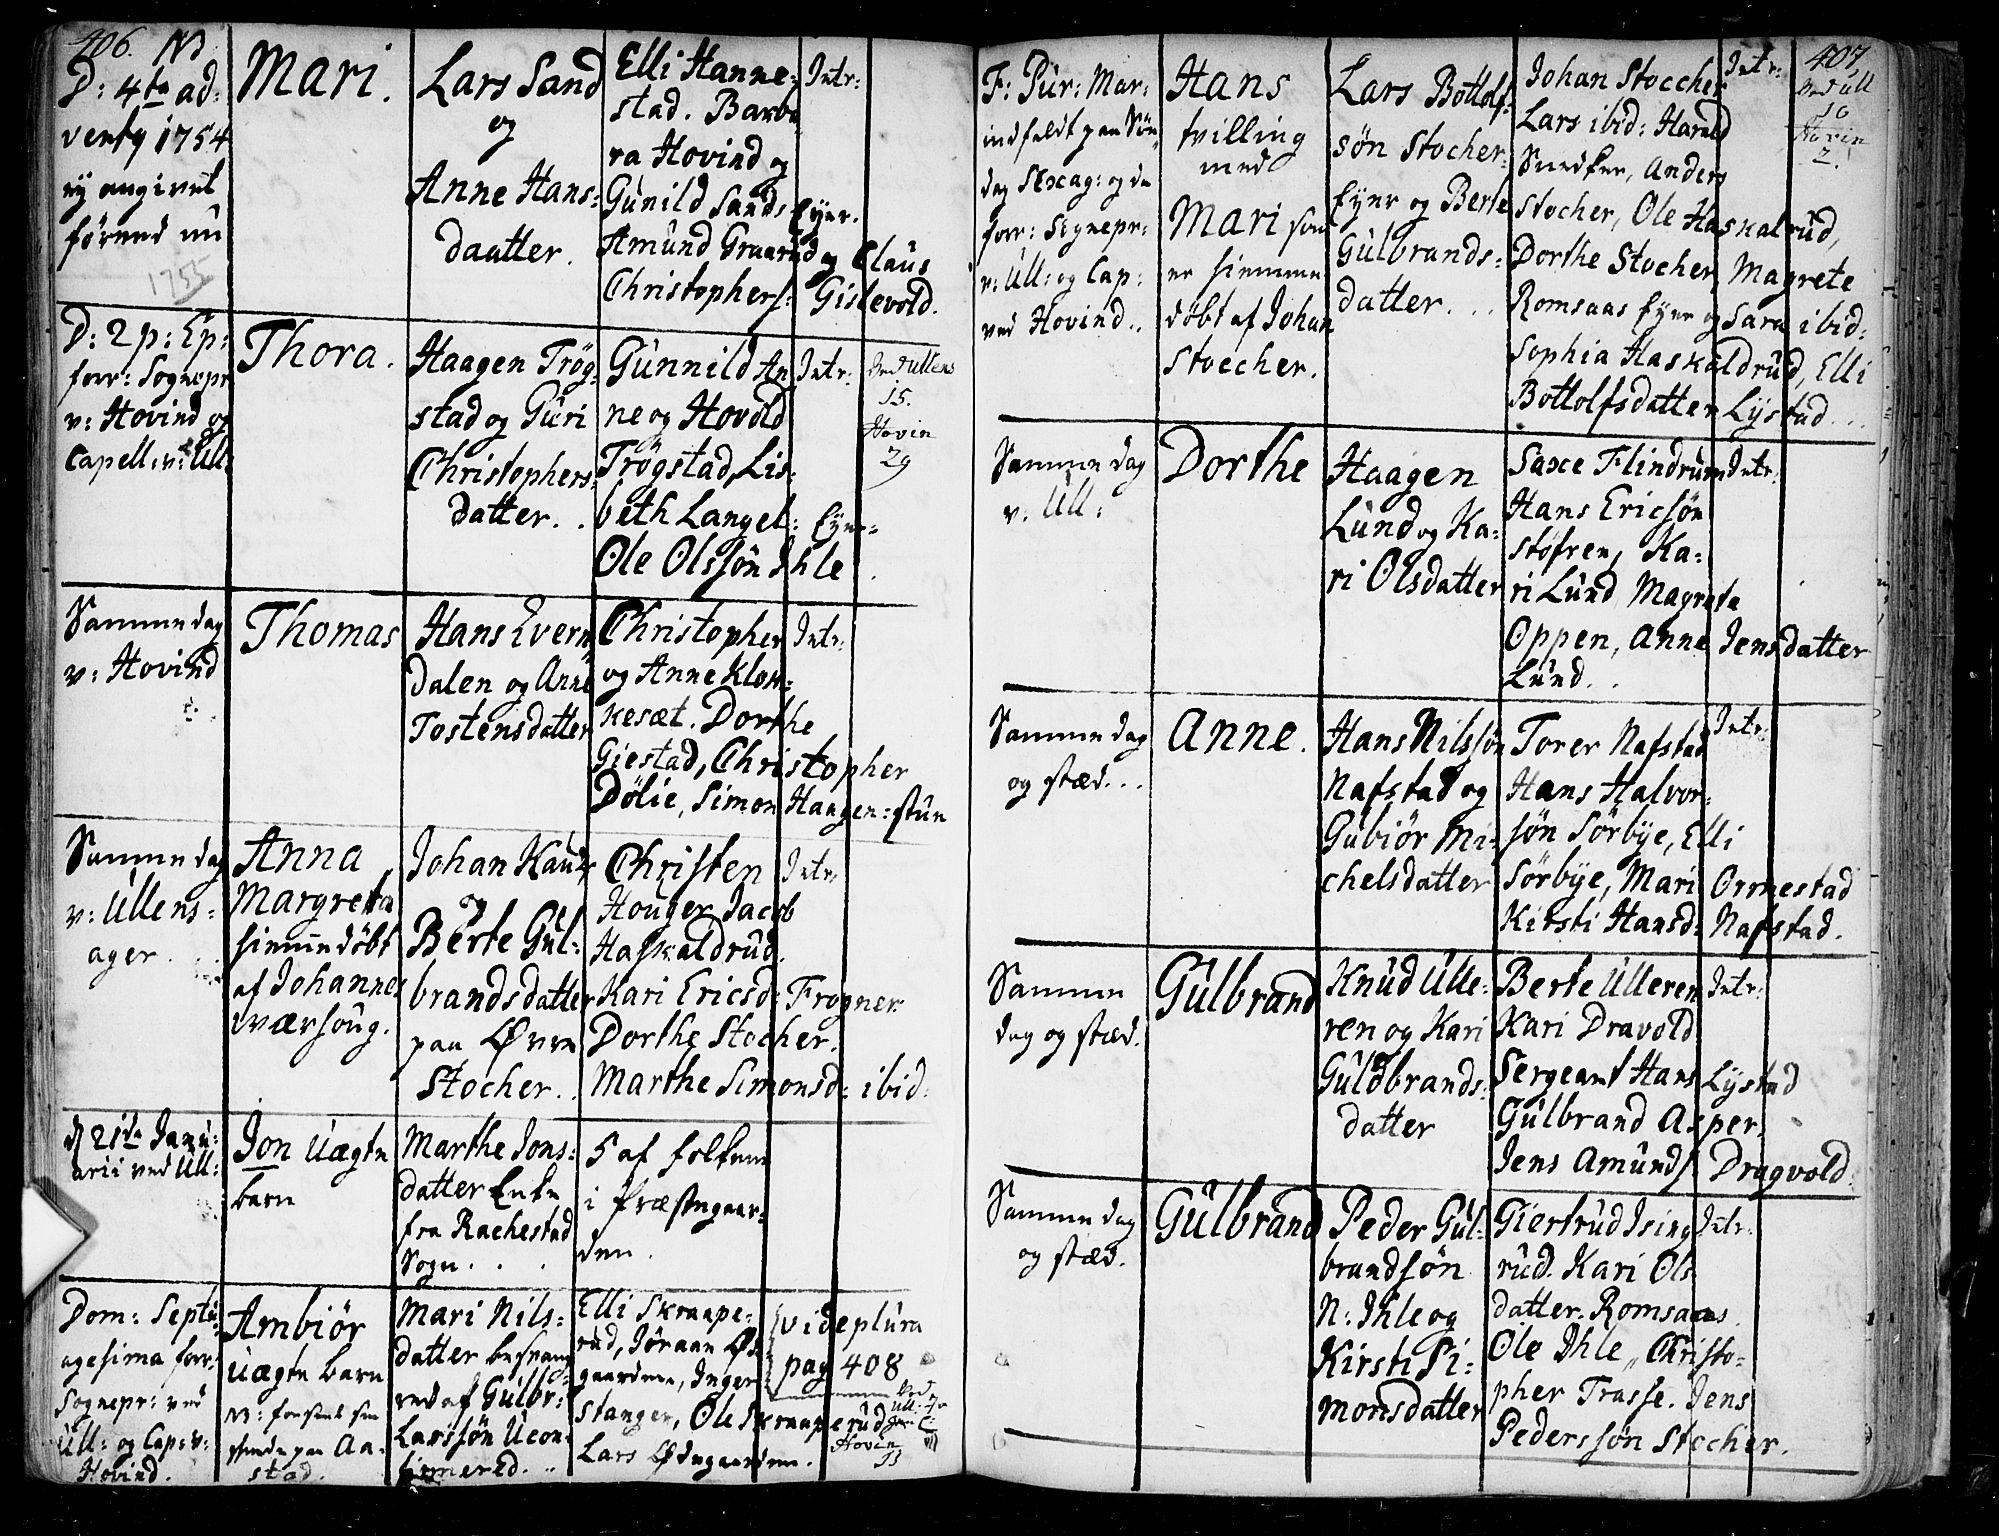 406. NB
D: 4te ad:
venty 1754
ey angivet
förend nu
1755
Mari.
Lars Sand
og
Anne Hans-
daatter.
Elli Hanne-
stad. Barba
ra Hovind og
Gunild Sands Eyer.
Amund Graarud og Claus
Christophers: Gislevold.
Intr:
D: 2 p: Ep:
forr: Sognepr
v: Hovind og
Capell: v: Ull:
Thora.
Haagen Trög-
stad og Guri
Christophers-
datter. .
Gunnild An
ne og Hovold
Trögstad, Lis-
beth Langel: Eyer-
Ole Olssön Ihle.
Intr:
Ved Ullens
15.
Hovin
29
Samme dag
v: Hovind
Thomas
Hans Evern
dalen og Anne
Tostensdatter
Christopher
og Anne Klow-
kesæt. Dorthe
Giestad, Christopher
Dölie, Simon Haagen-stun
Intr:
Samme dag
v: Ullens-
ager.
Anna
Margreta
hiemedöbt
af Johannes
Wærhoug.
Johan Kaur
og
Berte Gul-
brandsdatter
paa Øvre
Stocher..
Christen
Houger Jacob
Haskaldrud.
Kari Ericsd: Frogner
Dorthe Stocher.
Marthe Simonsd: ibid:
Intr:
d 21de Janu-
arii ved Ull:
Jon uægte
barn
Marthe Jons-
datter Enke
fra Rachestad
Sogn. . .
5 af folkene
i Præstegaar-
den.
Dom: Septu-
agesima forr:
Sognepr: ved
Ull: og Cap: v:
Hovind.
Ambiör
uægte barn
NB:
paa Aa-
stad.
Mari Nils-
datter besvang
red af Gulbr:
Larssön Ucon-
firmered...
Elli Skraape-
rud, Jöraan Øde
gaardene, Inger
Stanger, Ole Skraaperud
Lars Ødegaardene.
vide plura
pag 408
Ved
Ull:
Hovin
13
407
F: Pur: Mar:
indfaldt paa Søn
dag Sexag: og da
forr: Sognepr:
v: Ull: og Cap:
ved Hovind..
Hans
tvilling
med
Mari som
er hiemme
döbt af Johan
Stoecher.
Lars Bottolf-
søn Stocher-
Eyer og Berte
Gulbrands-
datter...
Johan Stoccher
Lars ibid: Harald
Anders
Stocher, Ole Haskalrud,
Dorthe Stocher, Magrete
Romsaas Eyer og Sara ibid:
Sophia Haskaldrud, Elli
Bottolfsdatter Lystad...
Intr:
Ved Ull
16
Hovin
2.
Samme dag
v. Ull:
Dorthe
Haagen
Lund og Ka-
ri Olsdatter
Saxe Flindrum
Hans Ericsön
Støfren, Ka-
ri Lund Magrete
Oppen, Anne Jensdatter
Lund..
Intr:
Samme dag
og stæd...
Anne.
Hans Nilssön
Nafstad og
Gubiör Mi-
chelsdatter
Torer Nafstad
Hans Halvor-
søn Sörbye, Elli
Sörbye, Mari Ormestad
Kirsti Hansd: Nafstad.
Intr:
Samme
dag og stæd.
Gulbrand
Knud Ulle-
ren og Kari
Guldbrands-
datter
Berte Ulleren
Kari Dravold
Sergeant Hans Lystad
Gulbrand Asper.
Jens Amunds: Dragvold.
Intr:
Samme dag
og stæd.
Gulbrand
Peder Gul-
brandsön
N: Ihle og
Kirsti Si-
monsdatter
Giertrud Ising
rud. Kari Ols
datter. Romsaas.
Ole Ihle,, Christo-
pher Trasse. Jens
Pederssön Stocher.
Intr: